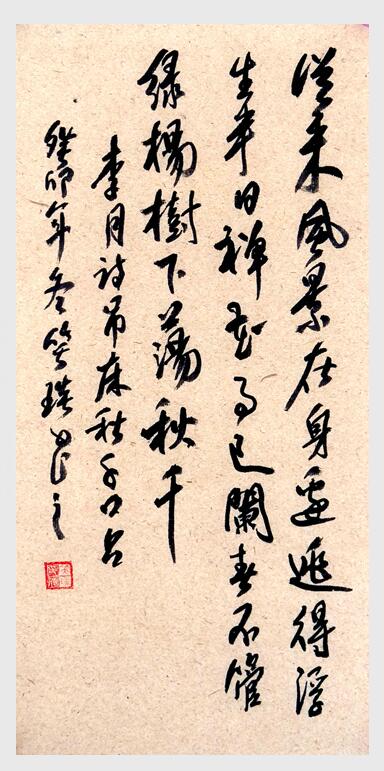 從来風景在身邊逃得浮
生半日禅花事已闌春不管
緑楊樹下蕩秋千
李月詩吊床秋千口占
癸卯年冬書之